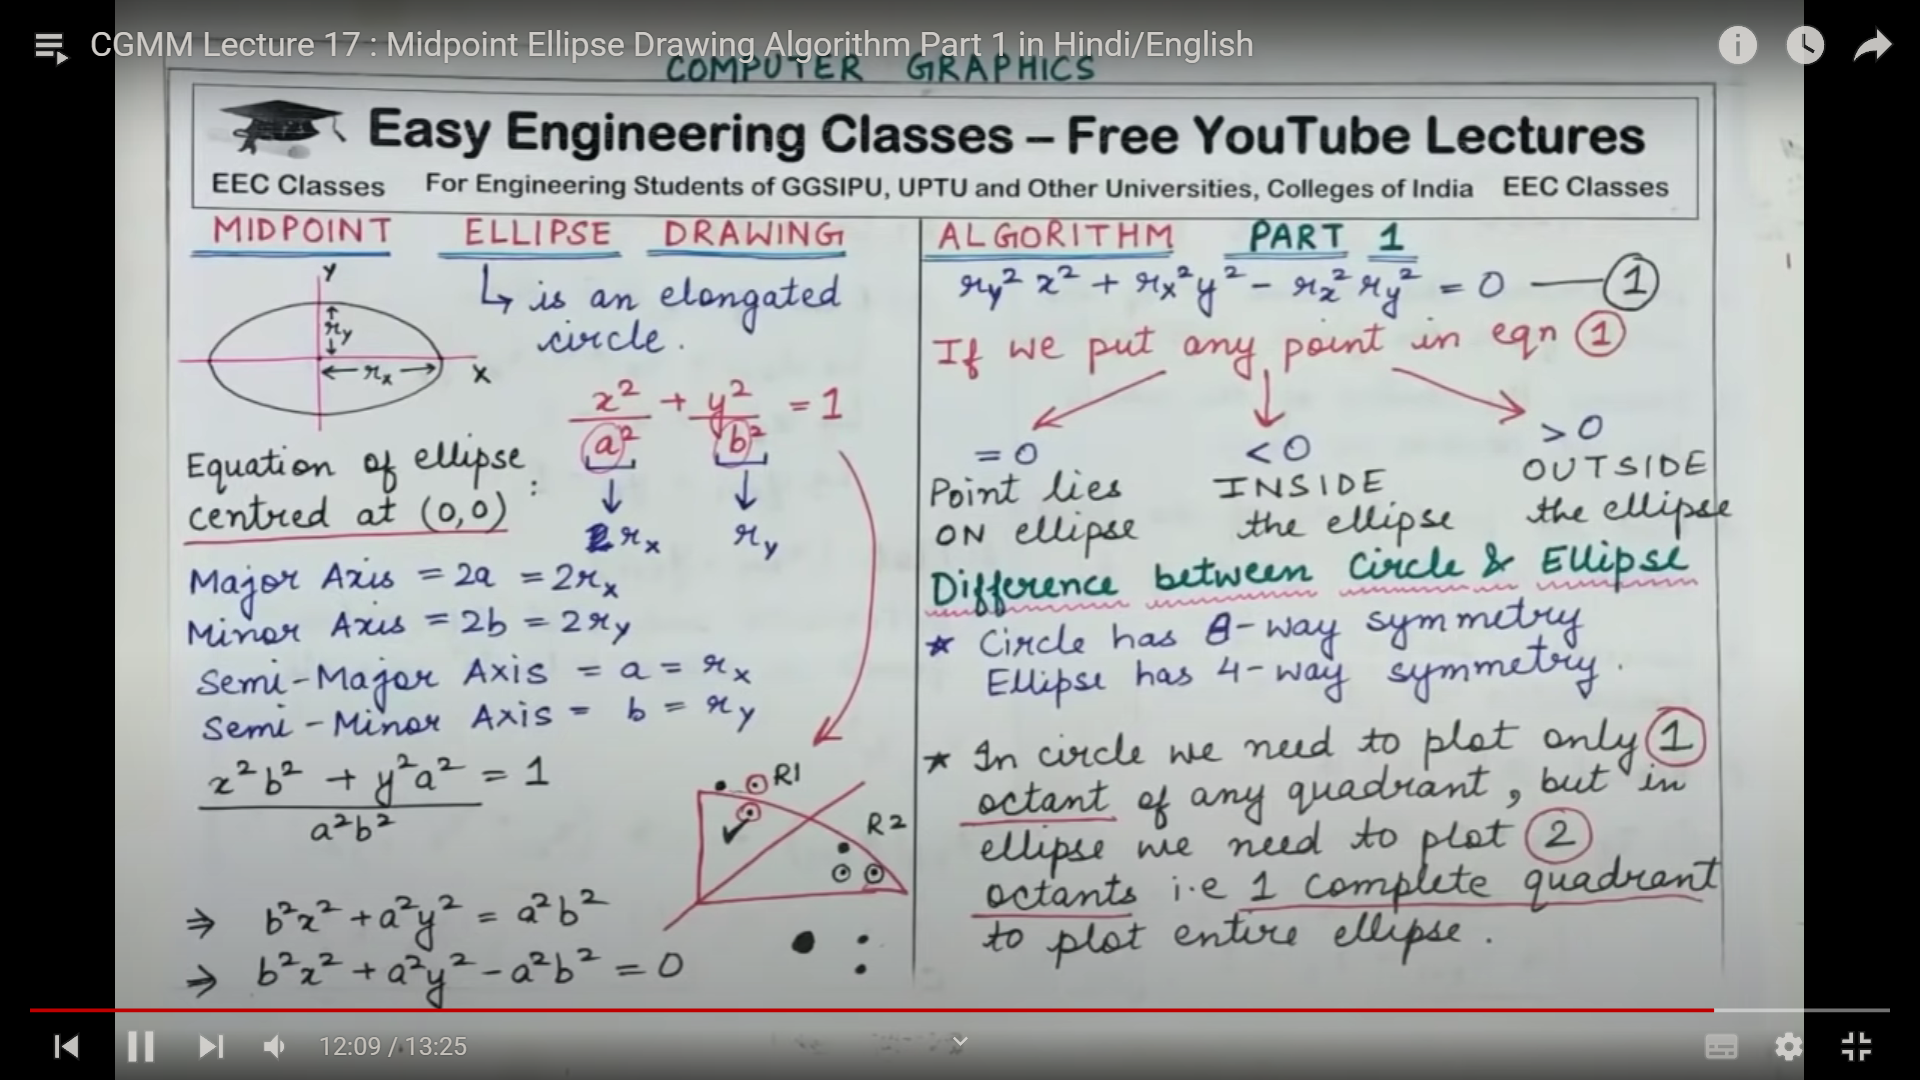 CGMM Lecture 17 : Midpoint Ellipse Drawing Algorithm Part 1 in Hindi/English
COMPUTER GRAPHICS
Easy Engineering Classes – Free YouTube Lectures
EEC Classes For Engineering Students of GGSIPU, UPTU and Other Universities, Colleges of India EEC Classes
MIDPOINT ELLIPSE DRAWING ALGORITHM PART 1
y
ry
rx
x
↳ is an elongated
circle.
x²/a² + y²/b² = 1
↓ ↓
rx ry
Equation of ellipse :
centred at (0,0)
Major Axis = 2a = 2rx
Minor Axis = 2b = 2ry
Semi-Major Axis = a = rx
Semi-Minor Axis = b = ry
x²b² + y²a² = 1
a²b²
⇒ b²x² + a²y² = a²b²
⇒ b²x² + a²y² - a²b² = 0
R1
R2
ry² x² + rx² y² - rx² ry² = 0 — ①
If we put any point in eqn ①
= 0
Point lies
ON ellipse
< 0
INSIDE
the ellipse
> 0
OUTSIDE
the ellipse
Difference between Circle & Ellipse
* Circle has 8-way symmetry
Ellipse has 4-way symmetry.
* In circle we need to plot only ①
octant of any quadrant, but in
ellipse we need to plot ②
octants i.e 1 complete quadrant
to plot entire ellipse.
12:09 / 13:25